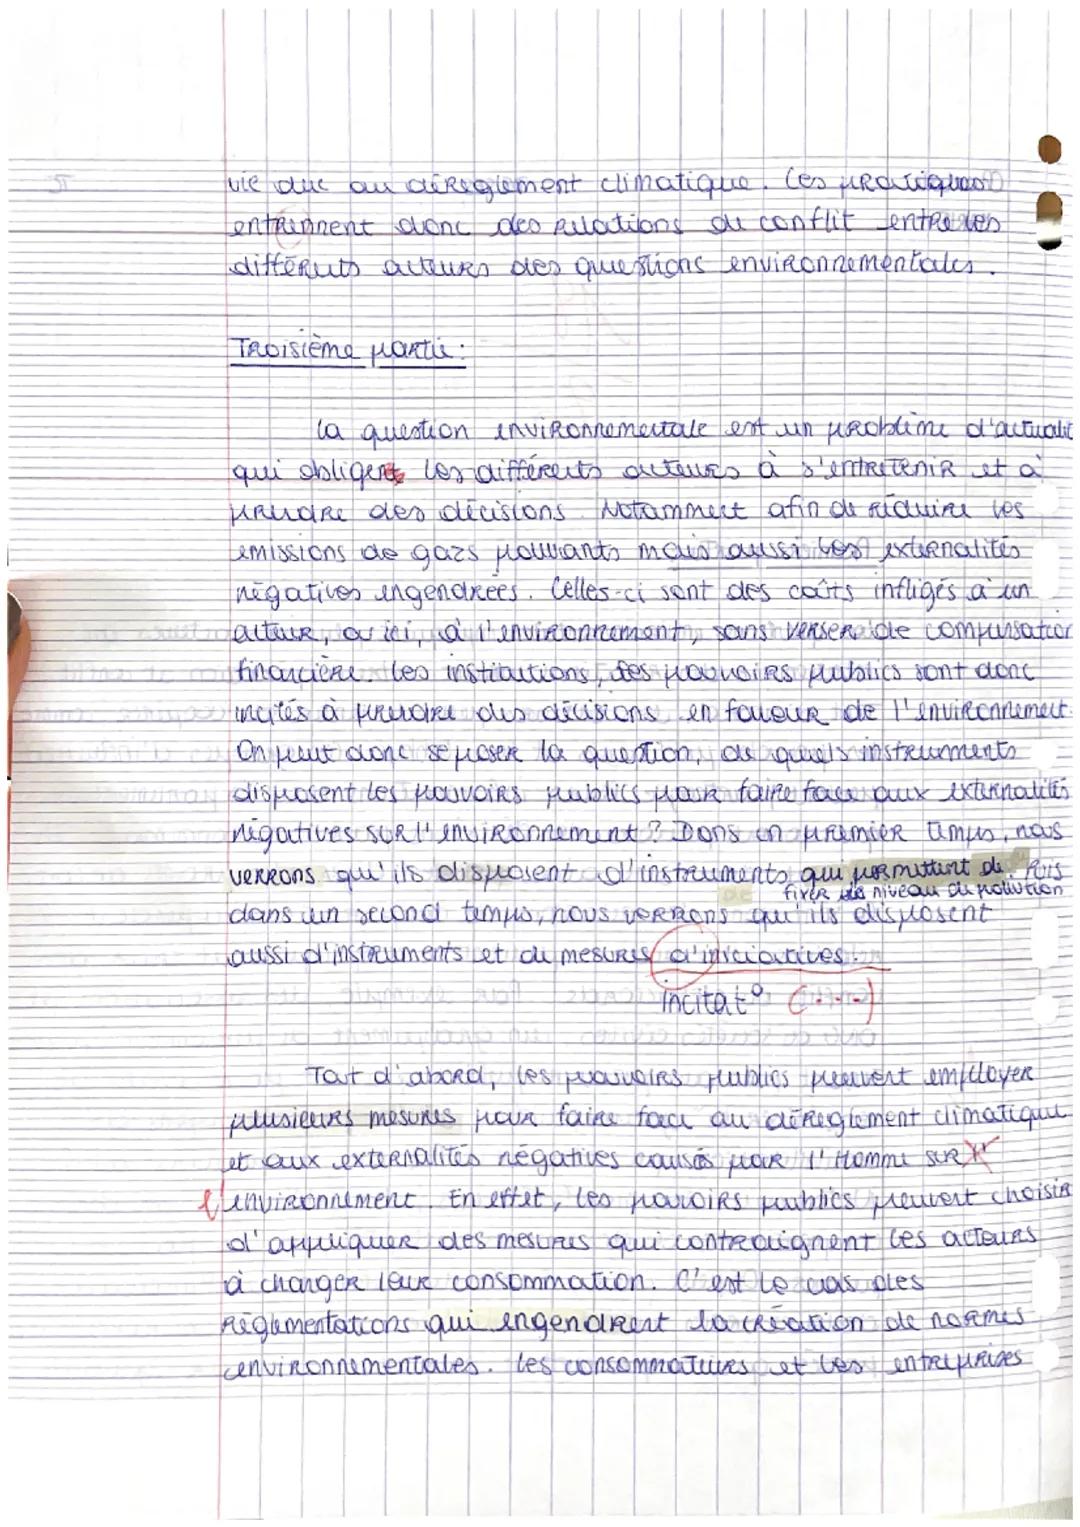 vie due au déreglement climatique. Ces pratiques
entriennent donc des relations de conflit entre les
différents acteurs des questions environnementales.
Troisième partie :
La question environnementale est un problème d'actualit
qui obligent les différents acteurs à s'entretenir et à
prendre des décisions. Notamment afin de réduire les
émissions de gazs polluants mais aussi les externalités
négatives engendrées. Celles-ci sont des coûts infligés à un
acteur, ou ici, à l'environnement, sans verser de compensation
financière. Les institutions, les pouvoirs publics sont donc
incités à prendre des décisions en faveur de l'environnement.
On peut donc se poser la question, de quels instruments
disposent les pouvoirs publics pour faire face aux externalités
négatives sur l'environnement ? Dans un premier temps, nous
verrons qu'ils disposent d'instruments qui permettent de. Puis
fixer des niveau de pollution
dans un second temps, nous verrons qu'ils disposent
aussi d'instruments et de mesures d'iniciatives.
incitat° (...)
Tout d'abord, les pouvoirs publics peuvent employer
plusieurs mesures pour faire face au déreglement climatique
et aux externalités négatives causés par l'Homme sur l'
l'environnement. En effet, les pouvoirs publics peuvent choisir
d'appliquer des mesures qui contraignent les acteurs
à changer leur consommation. C'est le cas des
réglementations qui engendrent la création de normes
environnementales. Les consommateurs et les entreprises